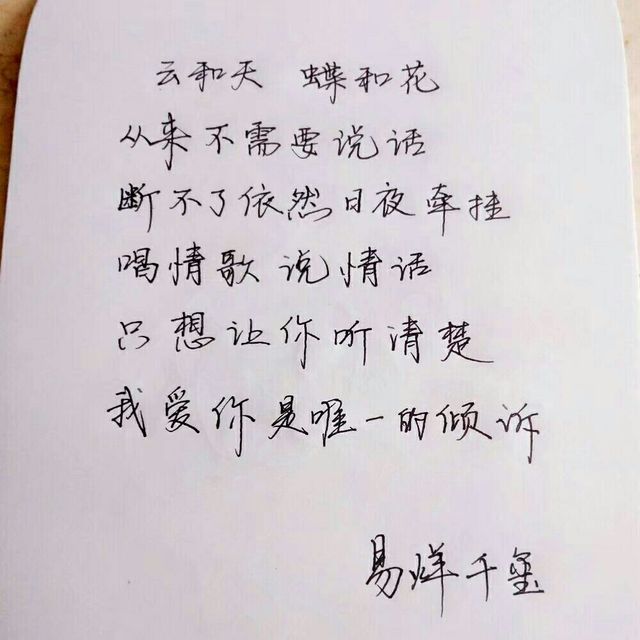 云和天 蝶和花
从来不需要说话
断不了依然日夜牵挂
唱情歌说情话
只想让你听清楚
我爱你是唯一的倾诉
易烊千玺